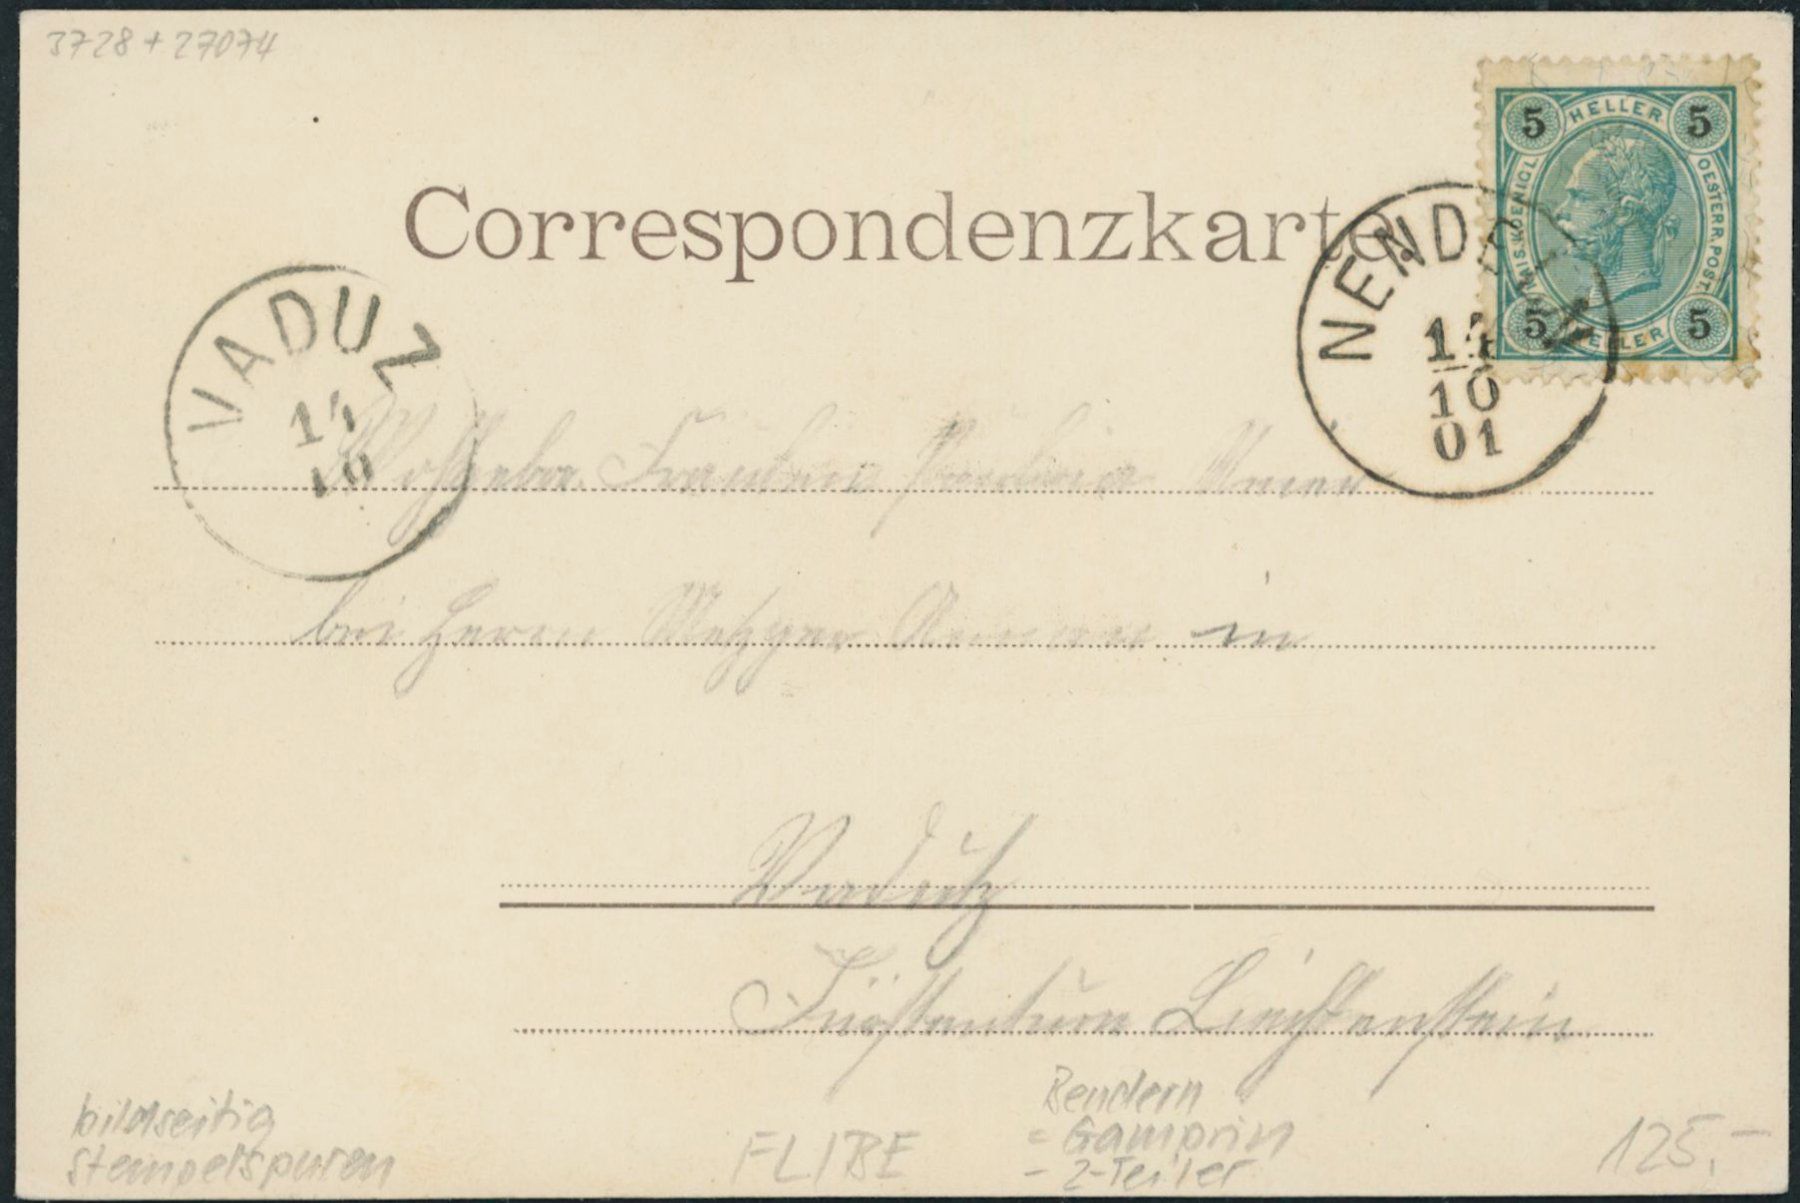 3728 + 27074
5 HELLER 5
KAIS. KOENIGL. OESTERR. POST.
5 HELLER 5
Correspondenzkarte
NENDELN
14
10
01
VADUZ
14
10
Fräulein
bei Herrn Metzger in
Vadutz
Fürstentum Liechtenstein
bildseitig
Stempelspuren
FLIBE
Bendern
= Gamprin
- 2-Teiler
125,-